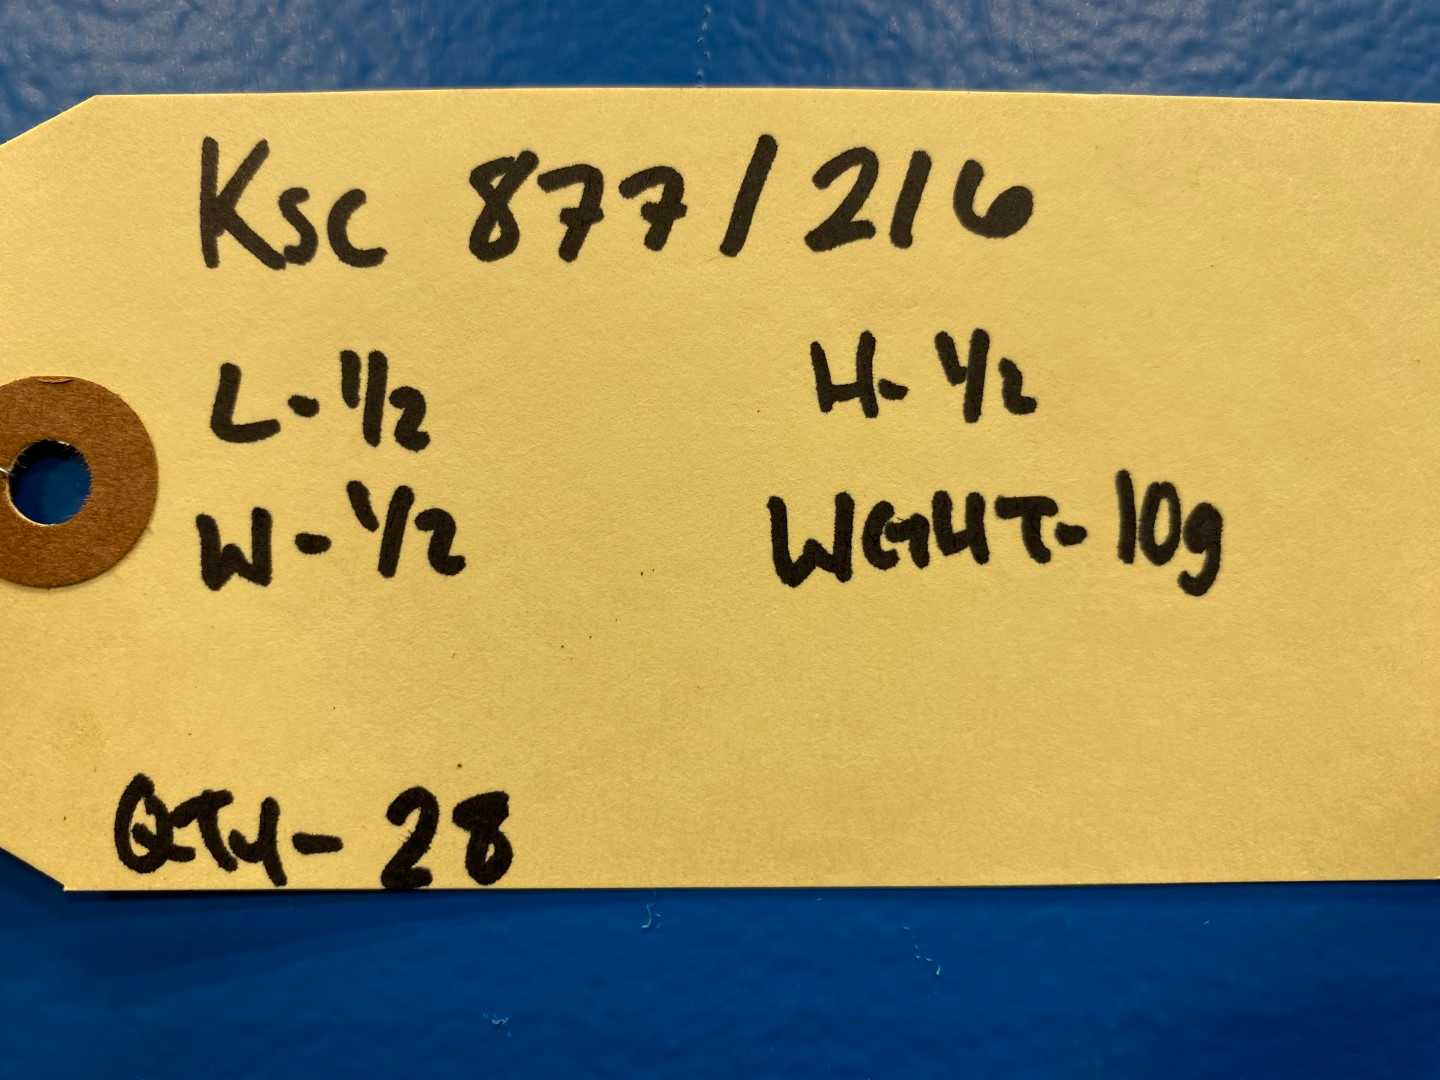 Ksc 877/216
L- 1 1/2
H- 1/2
W- 1/2
WGHT- 10g
QTY- 28